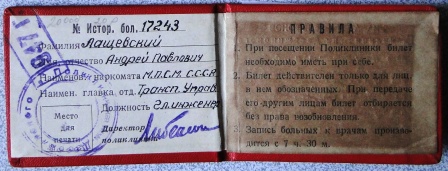 № Истор. бол. 17243
Фамилия Лащевский
отчество Андрей Павлович
Наимен. наркомата М.П.С.М. С.С.С.Р.
Наимен. главка, отд. Трансп. Управ.
Должность Гл. инженер
Место
для
печати
Директор
поликлиники
ПРАВИЛА
1. При посещении Поликлиники билет
необходимо иметь при себе.
2. Билет действителен только для лиц
в нем обозначенных. При передаче
его другим лицам билет отбирается
без права возобновления.
3. Запись больных к врачам производится
с 7 ч. 30 м.